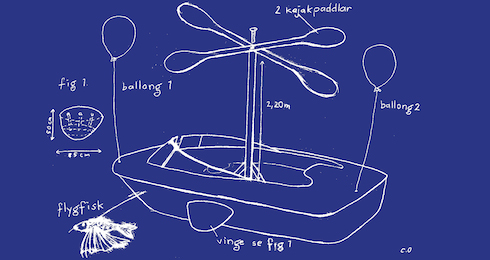 2 kajakpaddlar
fig 1.
ballong 1
ballong 2
2,20m
50cm
85 cm
flygfisk
vinge se fig 1
C.O